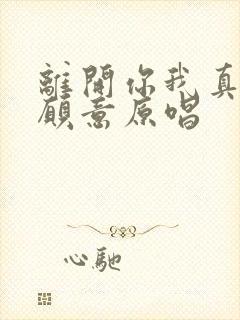 離開你我真
願意原唱
心馳